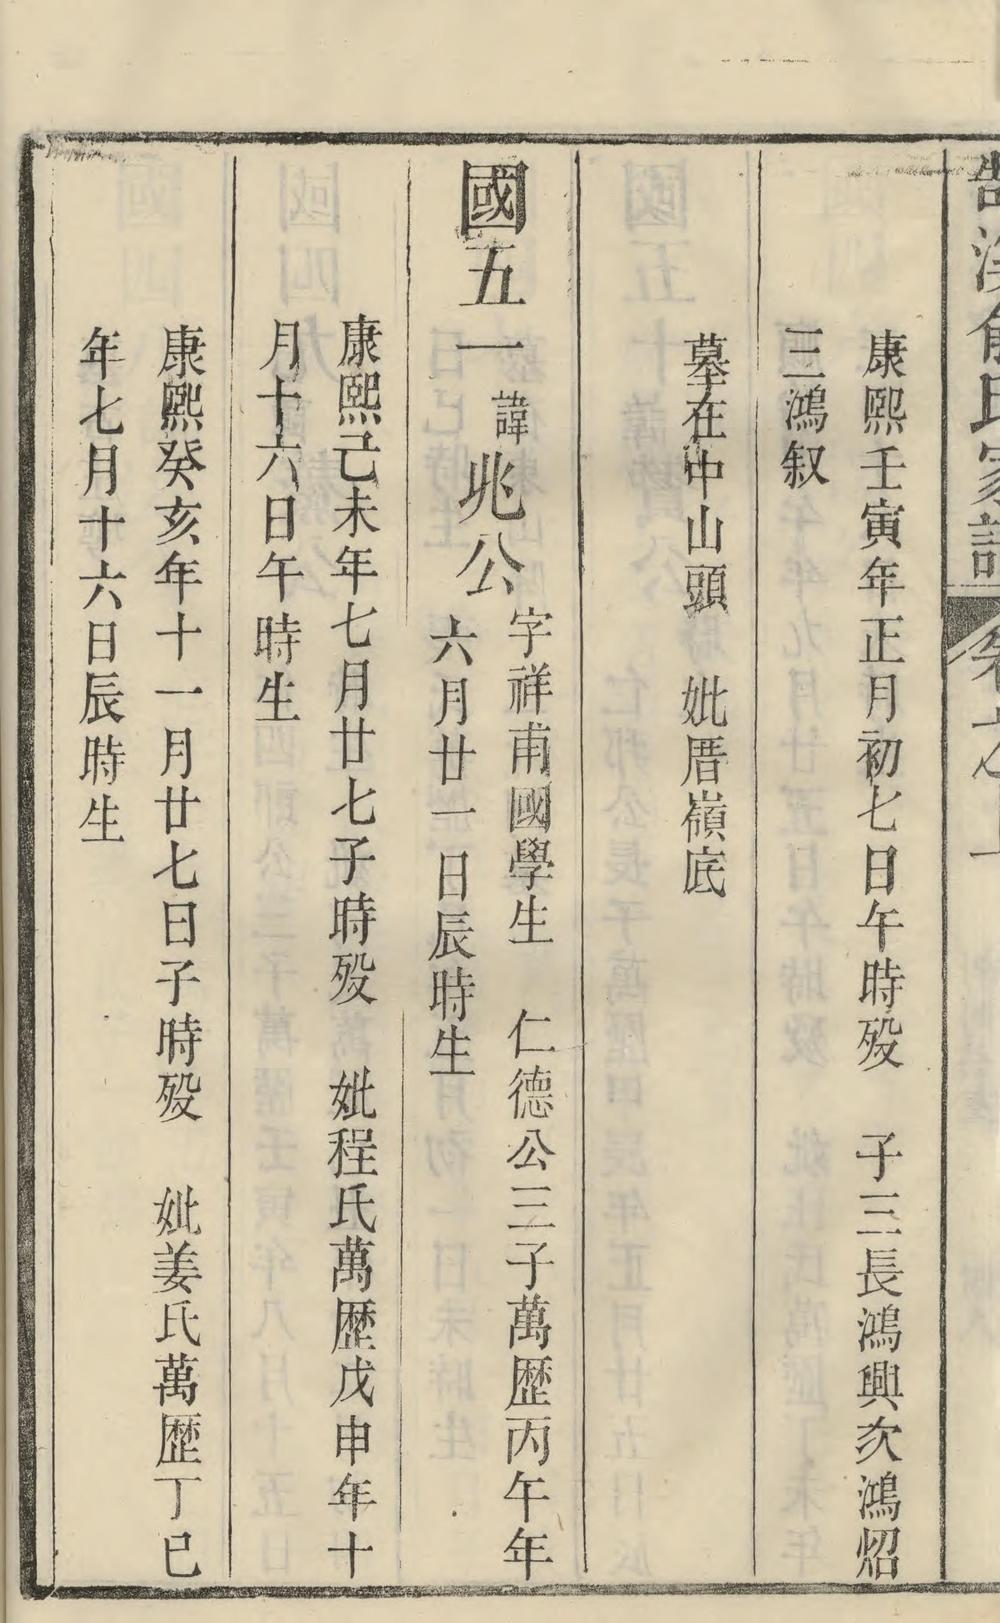 俞氏家譜 卷之十
康熙壬寅年正月初七日午時殁 子三長鴻興次鴻炤
三鴻叙
墓在中山頭 妣厝嶺底
國五一 諱兆公 字祥甫國學生 仁德公三子萬歷丙午年
六月廿一日辰時生
康熙己未年七月廿七子時殁 妣程氏萬歷戊申年十
月十六日午時生
康熙癸亥年十一月廿七日子時殁 妣姜氏萬歷丁巳
年七月十六日辰時生